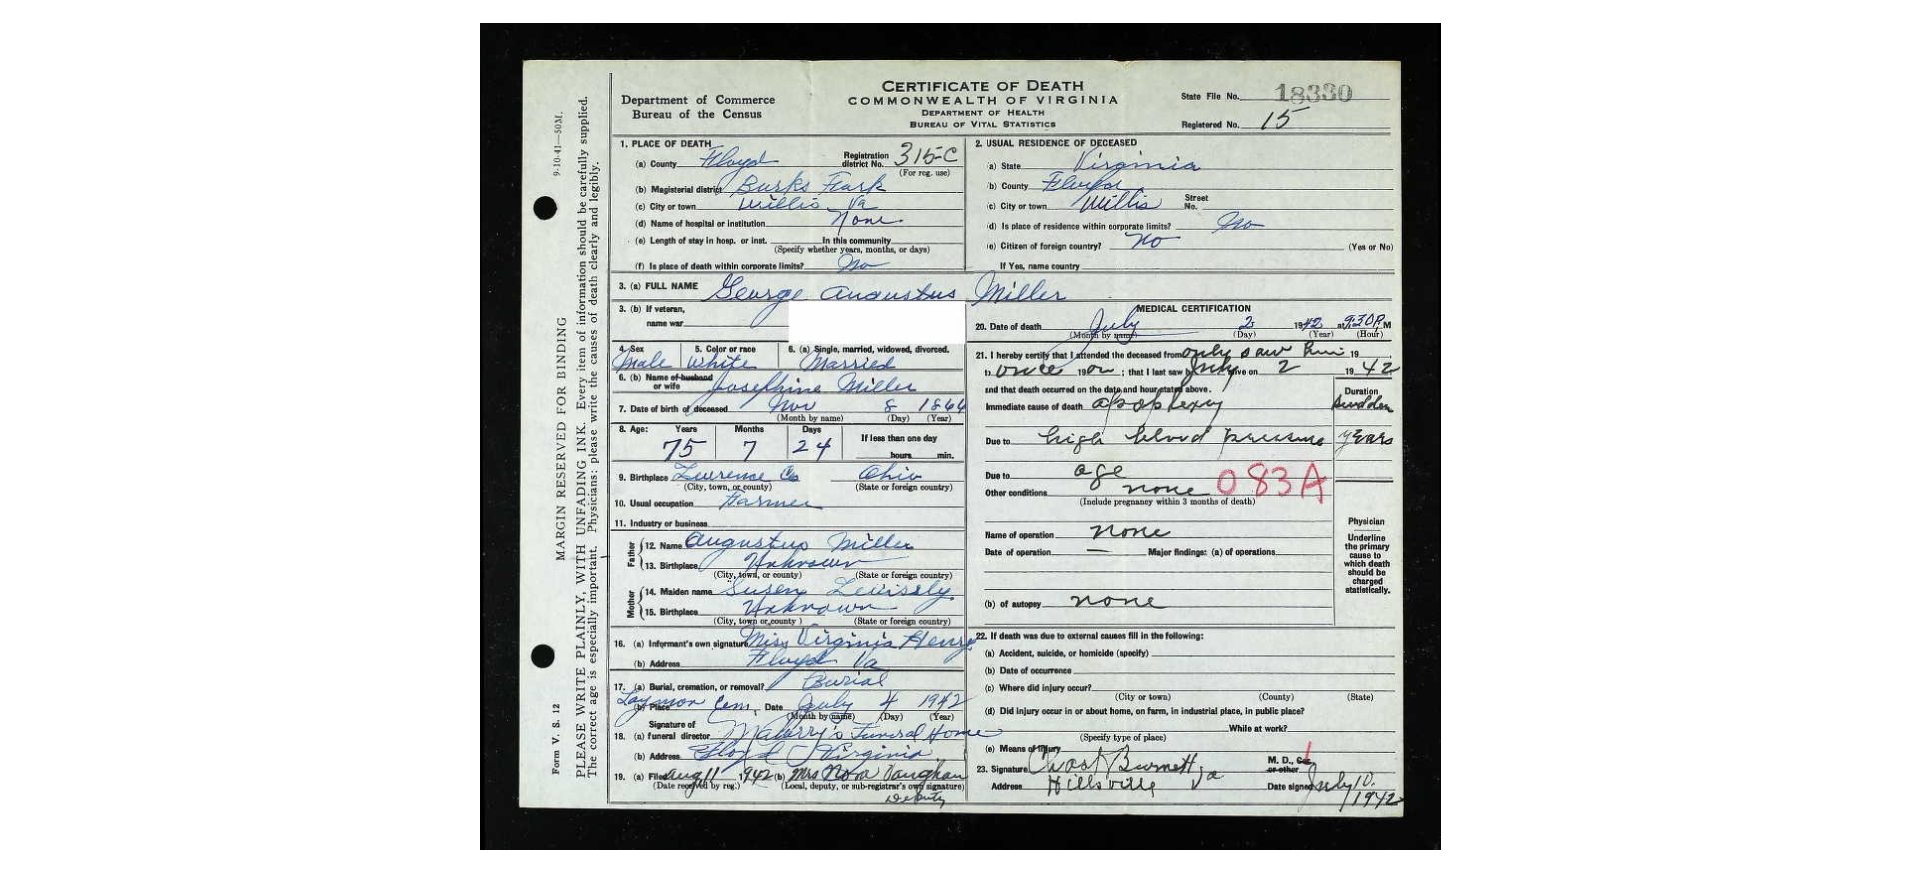 CERTIFICATE OF DEATH
COMMONWEALTH OF VIRGINIA
DEPARTMENT OF HEALTH
BUREAU OF VITAL STATISTICS
Department of Commerce
Bureau of the Census
State File No. 18330
Registered No. 15
9-10-41—50M.
MARGIN RESERVED FOR BINDING
PLEASE WRITE PLAINLY, WITH UNFADING INK. Every item of information should be carefully supplied.
The correct age is especially important. Physicians: please write the causes of death clearly and legibly.
Form V. S. 12
1. PLACE OF DEATH
(a) County Floyd Registration district No. 315-C
(For reg. use)
(b) Magisterial district Burks Fark
(c) City or town Willis Va
(d) Name of hospital or institution None
(e) Length of stay in hosp. or inst. In this community
(Specify whether years, months, or days)
(f) Is place of death within corporate limits? No
2. USUAL RESIDENCE OF DECEASED
(a) State Virginia
(b) County Floyd
(c) City or town Willis Street No.
(d) Is place of residence within corporate limits? No
(e) Citizen of foreign country? No (Yes or No)
If Yes, name country
3. (a) FULL NAME George Augustus Miller
3. (b) If veteran,
name war
4. Sex 5. Color or race 6. (a) Single, married, widowed, divorced.
Male White Married
6. (b) Name of husband or wife Josephine Miller
7. Date of birth of deceased Nov 8 1866
(Month by name) (Day) (Year)
8. Age: Years Months Days If less than one day
75 7 24 hours min.
9. Birthplace Lewrence Co Ohio
(City, town, or county) (State or foreign country)
10. Usual occupation Farmer
11. Industry or business
Father
12. Name Augustus Miller
13. Birthplace Unknown
(City, town, or county) (State or foreign country)
Mother
14. Maiden name Susen
15. Birthplace Unknown
(City, town or county) (State or foreign country)
16. (a) Informant's own signature Miss Virginia Henry
(b) Address Floyd Va
17. (a) Burial, cremation, or removal? Burial
(b) Place Laymon Cem, Date July 4 1942
(Month by name) (Day) (Year)
18. (a) Signature of funeral director Maberry's Funeral Home
(b) Address Floyd Virginia
19. (a) Filed Aug 11 1942 (b) Mrs Nora Vaughan
(Date received by reg.) (Local, deputy, or sub-registrar's own signature)
Deputy
MEDICAL CERTIFICATION
20. Date of death July 2 1942 at 9:30 P M
(Month by name) (Day) (Year) (Hour)
21. I hereby certify that I attended the deceased from only saw him 19
to once 19 on ; that I last saw h alive on July 2 1942
and that death occurred on the date and hour stated above.
Duration
Immediate cause of death apoplexy Sudden
Due to high blood pressure years
Due to age
Other conditions none 083A
(Include pregnancy within 3 months of death)
Name of operation none
Date of operation — Major findings: (a) of operations
(b) of autopsy none
Physician
Underline
the primary
cause to
which death
should be
charged
statistically.
22. If death was due to external causes fill in the following:
(a) Accident, suicide, or homicide (specify)
(b) Date of occurrence
(c) Where did injury occur?
(City or town) (County) (State)
(d) Did injury occur in or about home, on farm, in industrial place, in public place?
While at work?
(Specify type of place)
(e) Means of injury
23. Signature Chas J Burnett M. D., or other
Address Hillsville Va Date signed July 10. 1942